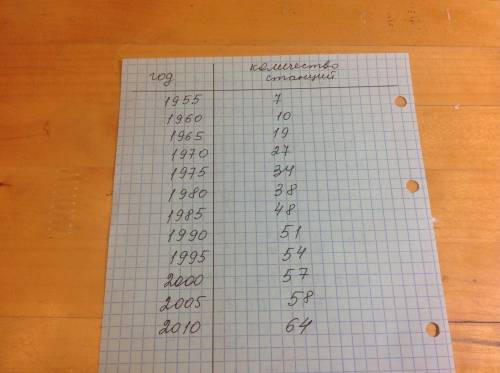 год количество станций
1955 7
1960 10
1965 19
1970 27
1975 34
1980 38
1985 48
1990 51
1995 54
2000 57
2005 58
2010 64